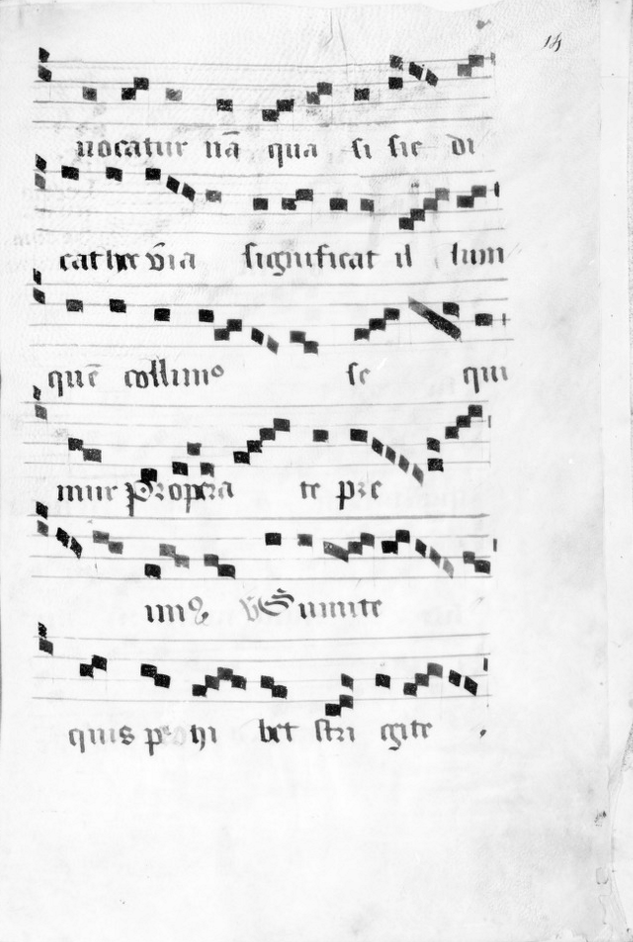 14
uocatur nā qua si sic di
cat hec v̄ia significat il lum
quē collimꝰ se qui
mur Propera te pre
mi℣ Sumite
quis pro hi bet stri gite .